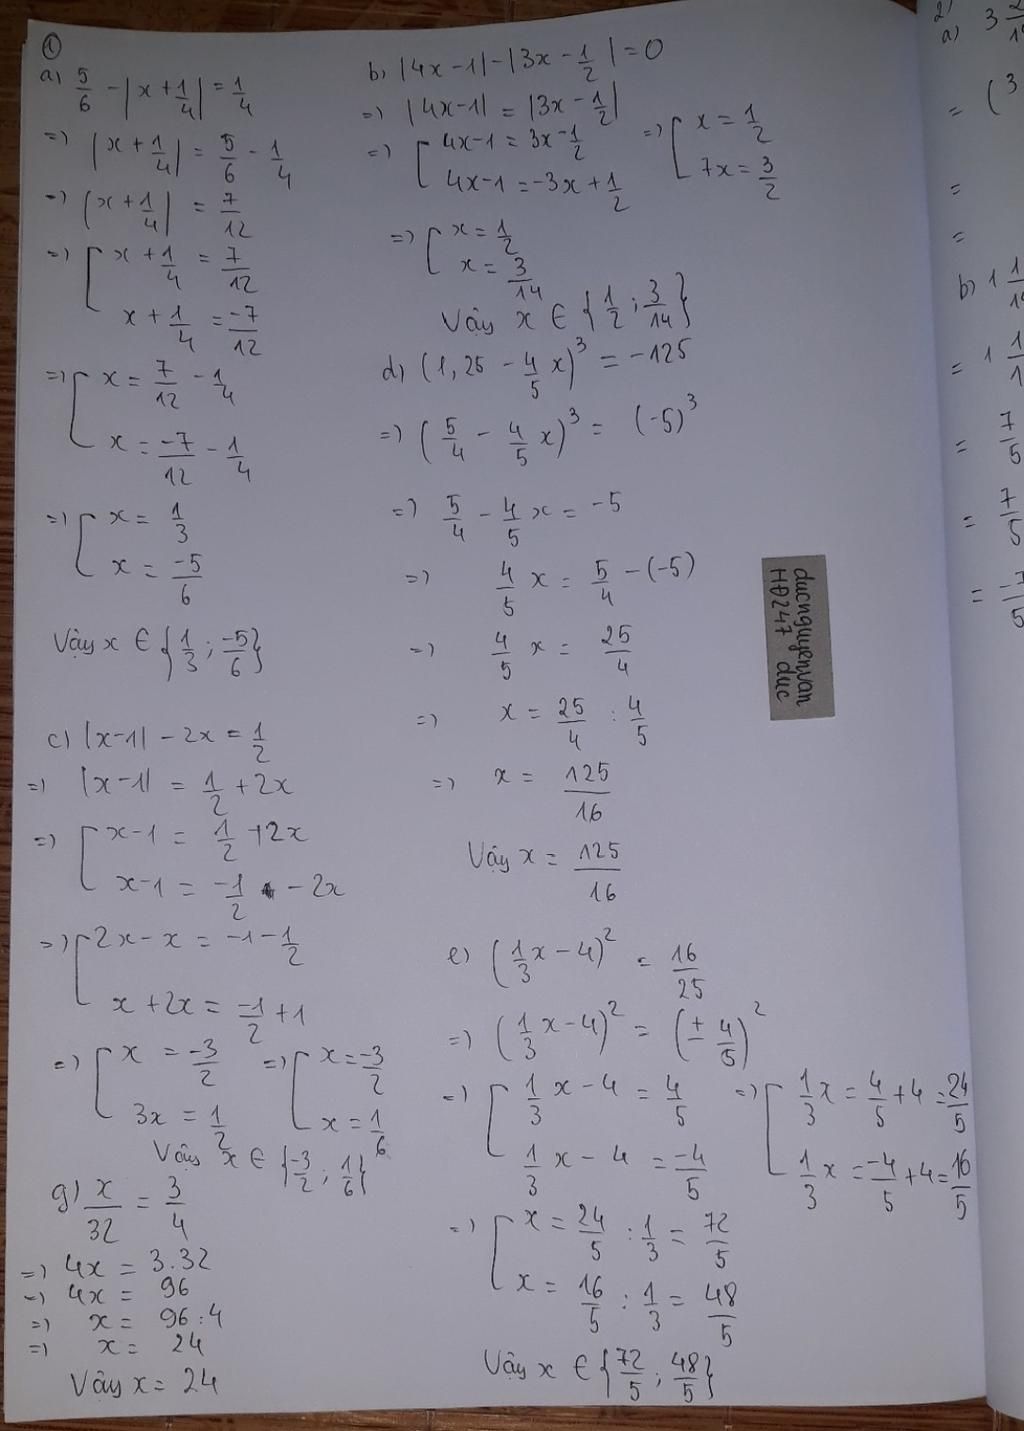 ①
a) 5/6 - |x + 1/4| = 1/4
=> |x + 1/4| = 5/6 - 1/4
=> |x + 1/4| = 7/12
=> [ x + 1/4 = 7/12
x + 1/4 = -7/12
=> [ x = 7/12 - 1/4
x = -7/12 - 1/4
=> [ x = 1/3
x = -5/6
Vậy x ∈ {1/3 ; -5/6}
c) |x-1| - 2x = 1/2
=> |x-1| = 1/2 + 2x
=> [ x-1 = 1/2 + 2x
x-1 = -1/2 - 2x
=> [ 2x - x = -1 - 1/2
x + 2x = -1/2 + 1
=> [ x = -3/2 => [ x = -3/2
3x = 1/2 x = 1/6
Vậy x ∈ {-3/2 ; 1/6}
g) x/32 = 3/4
=> 4x = 3.32
=> 4x = 96
=> x = 96 : 4
=> x = 24
Vậy x = 24
b) |4x - 1| - |3x - 1/2| = 0
=> |4x-1| = |3x - 1/2|
=> [ 4x-1 = 3x - 1/2 => [ x = 1/2
4x-1 = -3x + 1/2 7x = 3/2
=> [ x = 1/2
x = 3/14
Vậy x ∈ {1/2 ; 3/14}
d) (1,25 - 4/5 x)³ = -125
=> (5/4 - 4/5 x)³ = (-5)³
=> 5/4 - 4/5 x = -5
=> 4/5 x = 5/4 - (-5)
=> 4/5 x = 25/4
=> x = 25/4 : 4/5
=> x = 125/16
Vậy x = 125/16
e) (1/3 x - 4)² = 16/25
=> (1/3 x - 4)² = (± 4/5)²
=> [ 1/3 x - 4 = 4/5 => [ 1/3 x = 4/5 + 4 = 24/5
1/3 x - 4 = -4/5 1/3 x = -4/5 + 4 = 16/5
=> [ x = 24/5 : 1/3 = 72/5
x = 16/5 : 1/3 = 48/5
Vậy x ∈ {72/5 ; 48/5}
ducnguyenvan
HĐ247 duc
2)
a) 3
= (3
=
=
b) 1
= 1
= 7/5
= 7/5
= -7/5